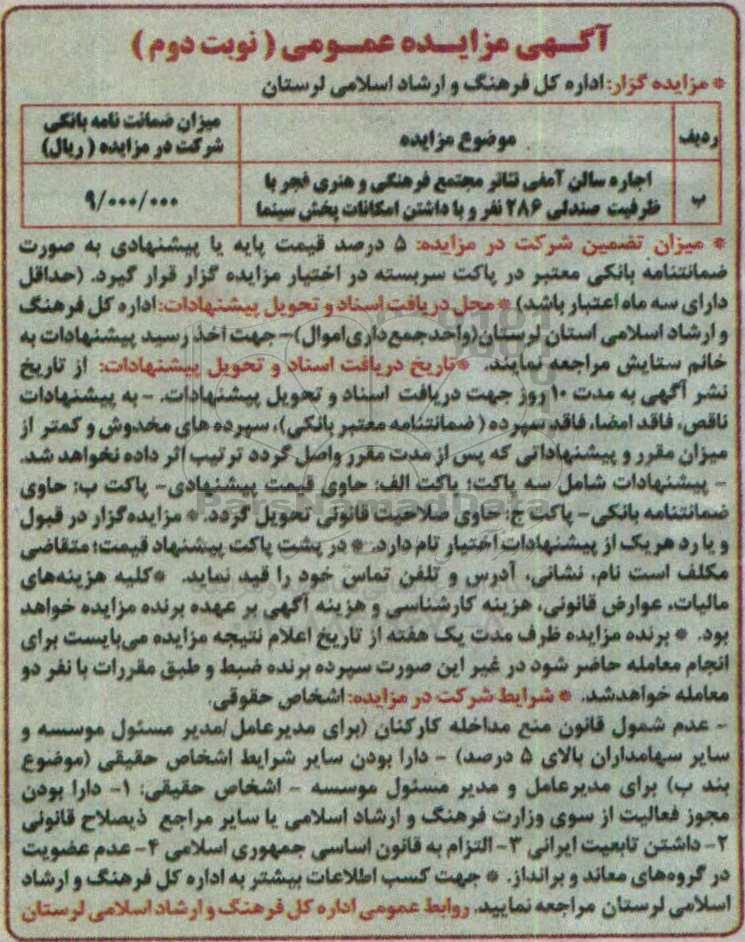 آگهی مزایده عمومی ( نوبت دوم )
* مزایده گزار: اداره کل فرهنگ و ارشاد اسلامی لرستان
ردیف
موضوع مزایده
میزان ضمانت نامه بانکی
شرکت در مزایده ( ریال)
ب
اجاره سالن آمفی تئاتر مجتمع فرهنگی و هنری فجر با
ظرفیت صندلی ۲۸۶ نفر و با داشتن امکانات پخش سینما
۹/۰۰۰/۰۰۰
* میزان تضمین شرکت در مزایده: ۵ درصد قیمت پایه یا پیشنهادی به صورت
ضمانتنامه بانکی معتبر در پاکت سربسته در اختیار مزایده گزار قرار گیرد. (حداقل
دارای سه ماه اعتبار باشد) * محل دریافت اسناد و تحویل پیشنهادات: اداره کل فرهنگ
و ارشاد اسلامی استان لرستان(واحدجمع‌داری‌اموال)- جهت اخذ رسید پیشنهادات به
خانم ستایش مراجعه نمایند. *تاریخ دریافت اسناد و تحویل پیشنهادات: از تاریخ
نشر آگهی به مدت ۱۰ روز جهت دریافت اسناد و تحویل پیشنهادات. - به پیشنهادات
ناقص، فاقد امضا، فاقد سپرده ( ضمانتنامه معتبر بانکی)، سپرده های مخدوش و کمتر از
میزان مقرر و پیشنهاداتی که پس از مدت مقرر واصل گردد ترتیب اثر داده نخواهد شد.
- پیشنهادات شامل سه پاکت؛ پاکت الف: حاوی قیمت پیشنهادی- پاکت ب: حاوی
ضمانتنامه بانکی- پاکت ج: حاوی صلاحیت قانونی تحویل گردد. * مزایده‌گزار در قبول
و یا رد هر یک از پیشنهادات اختیار تام دارد. * در پشت پاکت پیشنهاد قیمت؛ متقاضی
مکلف است نام، نشانی، آدرس و تلفن تماس خود را قید نماید. *کلیه هزینه‌های
مالیات، عوارض قانونی، هزینه کارشناسی و هزینه آگهی بر عهده برنده مزایده خواهد
بود. * برنده مزایده ظرف مدت یک هفته از تاریخ اعلام نتیجه مزایده می‌بایست برای
انجام معامله حاضر شود در غیر این صورت سپرده برنده ضبط و طبق مقررات با نفر دو
معامله خواهدشد. * شرایط شرکت در مزایده: اشخاص حقوقی:
- عدم شمول قانون منع مداخله کارکنان (برای مدیرعامل/مدیر مسئول موسسه و
سایر سهامداران بالای ۵ درصد) - دارا بودن سایر شرایط اشخاص حقیقی (موضوع
بند ب) برای مدیرعامل و مدیر مسئول موسسه - اشخاص حقیقی: ۱- دارا بودن
مجوز فعالیت از سوی وزارت فرهنگ و ارشاد اسلامی یا سایر مراجع ذیصلاح قانونی
۲- داشتن تابعیت ایرانی ۳- التزام به قانون اساسی جمهوری اسلامی ۴- عدم عضویت
در گروه‌های معاند و برانداز. * جهت کسب اطلاعات بیشتر به اداره کل فرهنگ و ارشاد
اسلامی لرستان مراجعه نمایید. روابط عمومی اداره کل فرهنگ و ارشاد اسلامی لرستان
ParsNamadData